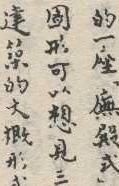 的一座“廡殿式”
圖形可以想見三
建築的大概形式